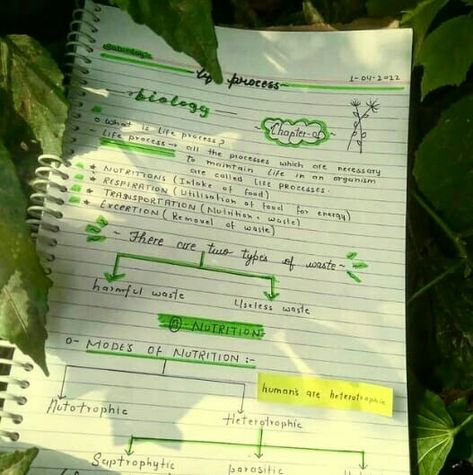 Life process
1-04-2022
biology
Chapter-01
o What is life process?
- Life process → all the processes which are necessary
to maintain life in an organism
are called life processes.
* NUTRITIONS (Intake of food)
* RESPIRATION (Utilisation of food for energy)
* TRANSPORTATION (Nutrition, waste)
* EXCERTION (Removal of waste)
~ There are two types of waste ~
harmful waste
Useless waste
NUTRITION
0- MODES OF NUTRITION :-
humans are heterotrophic
Autotrophic
Heterotrophic
Saprophytic
parasitic